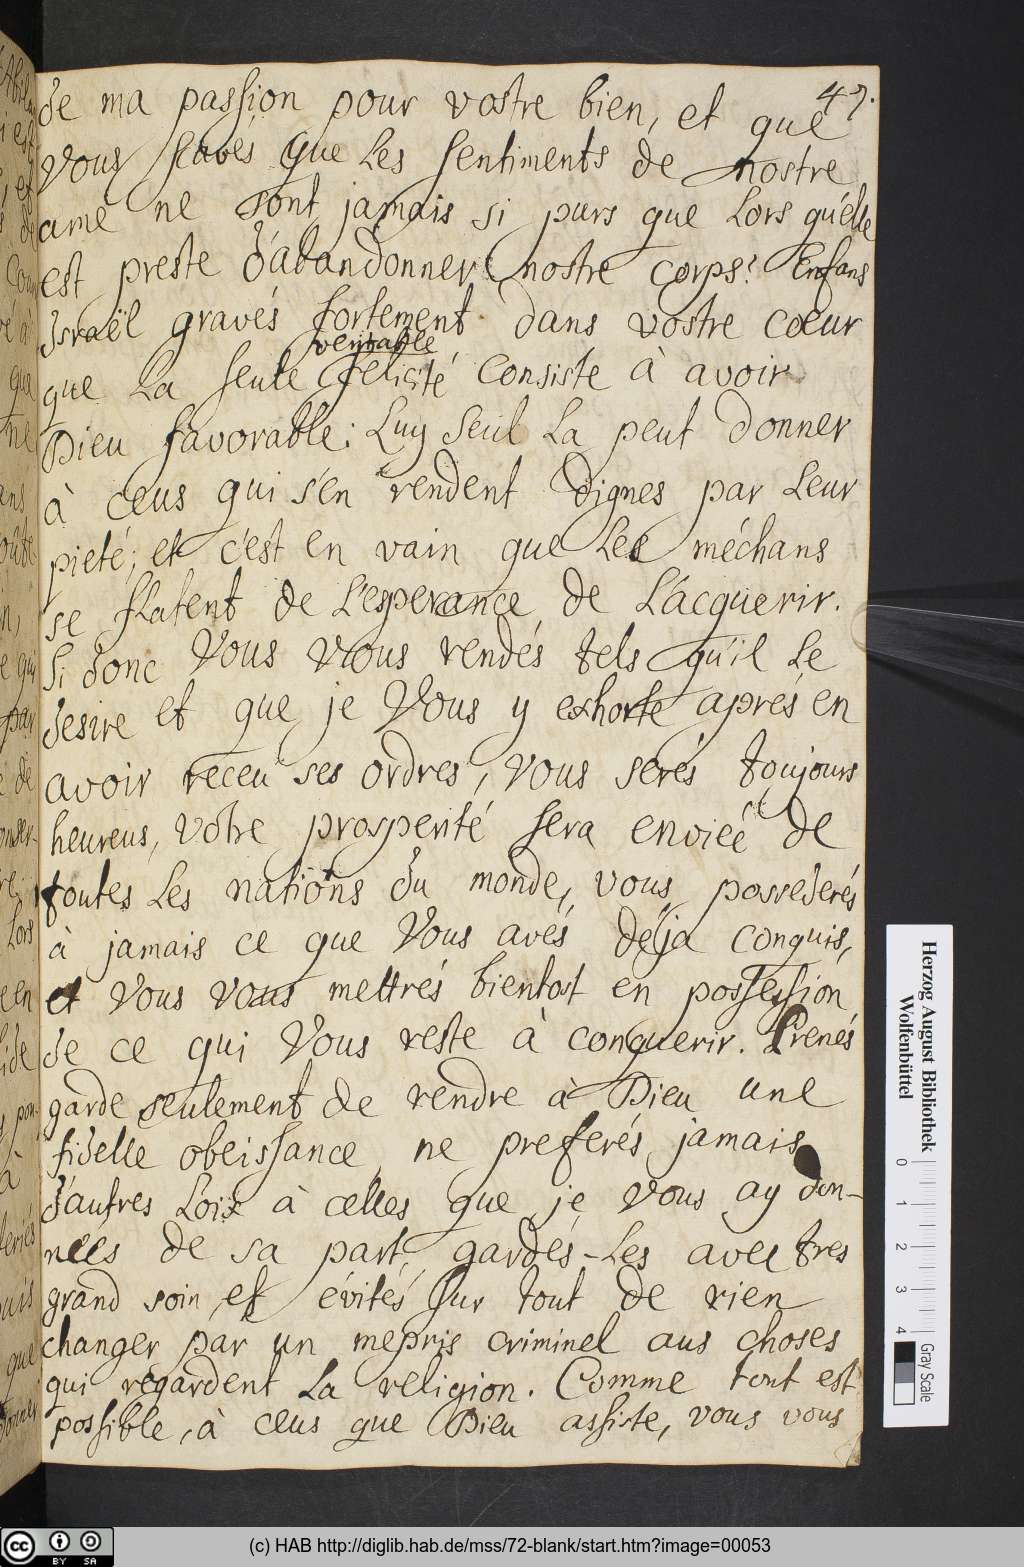 47.
de ma passion pour vostre bien, et que
vous scavés que les sentiments de nostre
ame ne sont jamais si purs que Lors qu'elle
est preste d'abandonner nostre corps! Enfans
Israël gravés fortement dans vostre cœur
veritable
que La seule felicité consiste à avoir
Dieu favorable: Luy seul La peut donner
à ceus qui s'en rendent dignes par Leur
pieté; et c'est en vain que Les méchans
se flatent de L'esperance de L'acquerir.
Si donc Vous vous rendés tels qu'il Le
desire et que je Vous y exhorte aprés en
avoir receu ses ordres, vous serés toujours
heureus, votre prosperité sera enviée de
toutes Les nations du monde, vous possederés
à jamais ce que Vous avés déja conquis,
et vous vous mettrés bientost en possession
de ce qui Vous reste à conquerir. Prenés
garde seulement de rendre à Dieu une
fidelle obeissance, ne preferés jamais
d'autres Loix à celles que je vous ay don-
nées de sa part, gardés-Les avec tres
grand soin, et évités sur tout de rien
changer par un mepris criminel aus choses
qui regardent La religion. Comme tout est
possible, à ceus que Dieu assiste, vous vous
Herzog August Bibliothek
Wolfenbüttel
0 1 2 3 4
Gray Scale
(c) HAB http://diglib.hab.de/mss/72-blank/start.htm?image=00053
cc BY SA